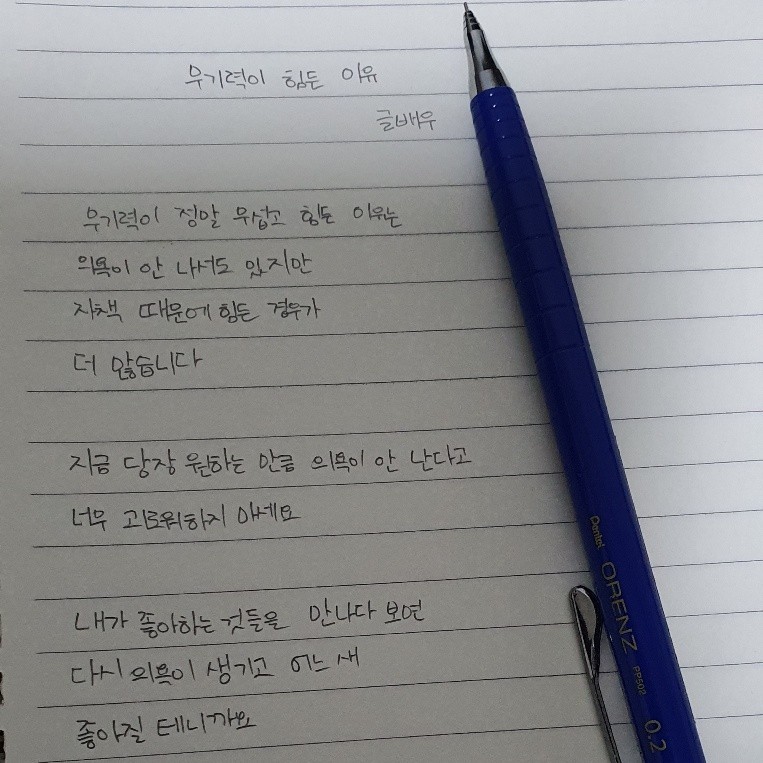 무기력이 힘든 이유
글배우
무기력이 정말 무섭고 힘든 이유는
의욕이 안 나서도 있지만
자책 때문에 힘든 경우가
더 많습니다
지금 당장 원하는 만큼 의욕이 안 난다고
너무 괴로워하지 마세요
내가 좋아하는 것들을 만나다 보면
다시 의욕이 생기고 어느 새
좋아질 테니까요
Pentel ORENZ PP502 0.2